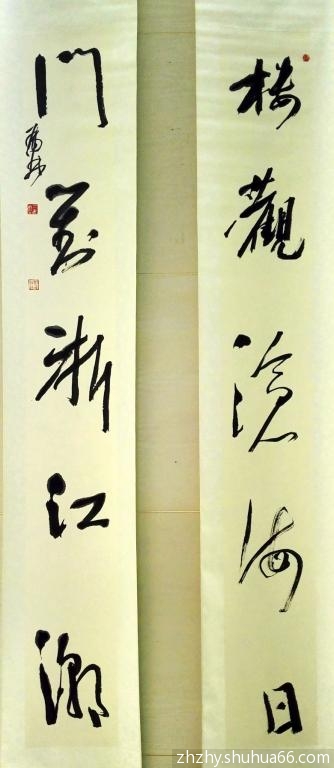 楼觀滄海日
門對浙江潮
zhzhy.shuhua66.com